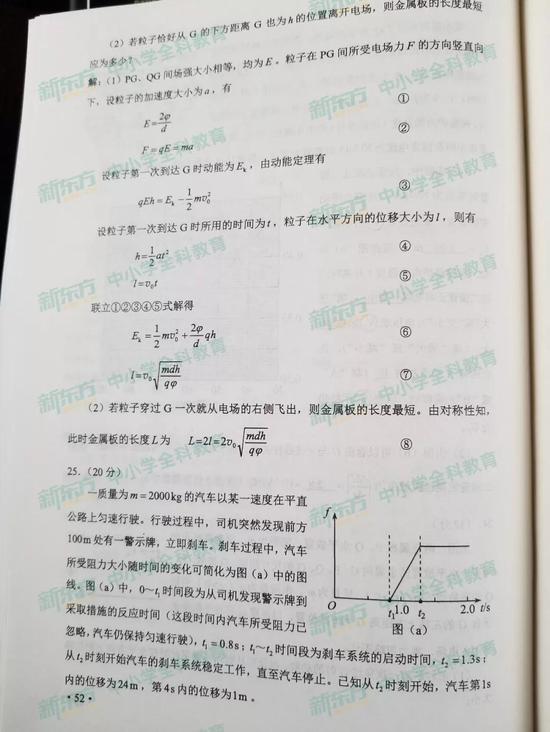 (2)若粒子恰好从 G 的下方距离 G 也为 h 的位置离开电场,则金属板的长度最短
应为多少?
解:(1)PG、QG 间场强大小相等,均为 E。粒子在 PG 间所受电场力 F 的方向竖直向
下,设粒子的加速度大小为 a,有
E=2φ/d ①
F=qE=ma ②
设粒子第一次到达 G 时动能为 Eₖ,由动能定理有
qEh=Eₖ-1/2 mv₀² ③
设粒子第一次到达 G 时所用的时间为 t,粒子在水平方向的位移大小为 l,则有
h=1/2 at² ④
l=v₀t ⑤
联立①②③④⑤式解得
Eₖ=1/2 mv₀²+2φ/d qh ⑥
l=v₀√(mdh/qφ) ⑦
(2)若粒子穿过 G 一次就从电场的右侧飞出,则金属板的长度最短。由对称性知,
此时金属板的长度 L 为 L=2l=2v₀√(mdh/qφ) ⑧
25.(20 分)
一质量为 m=2000kg 的汽车以某一速度在平直
公路上匀速行驶。行驶过程中,司机突然发现前方
100m 处有一警示牌,立即刹车。刹车过程中,汽车
所受阻力大小随时间的变化可简化为图(a)中的图
线。图(a)中,0~t₁时间段为从司机发现警示牌到
采取措施的反应时间(这段时间内汽车所受阻力已
忽略,汽车仍保持匀速行驶),t₁=0.8s;t₁~t₂时间段为刹车系统的启动时间,t₂=1.3s;
从 t₂时刻开始汽车的刹车系统稳定工作,直至汽车停止。已知从 t₂时刻开始,汽车第 1s
内的位移为 24m,第 4s 内的位移为 1m。
f
O t₁ 1.0 t₂ 2.0 t/s
图(a)
·52·
新东方 中小学全科教育